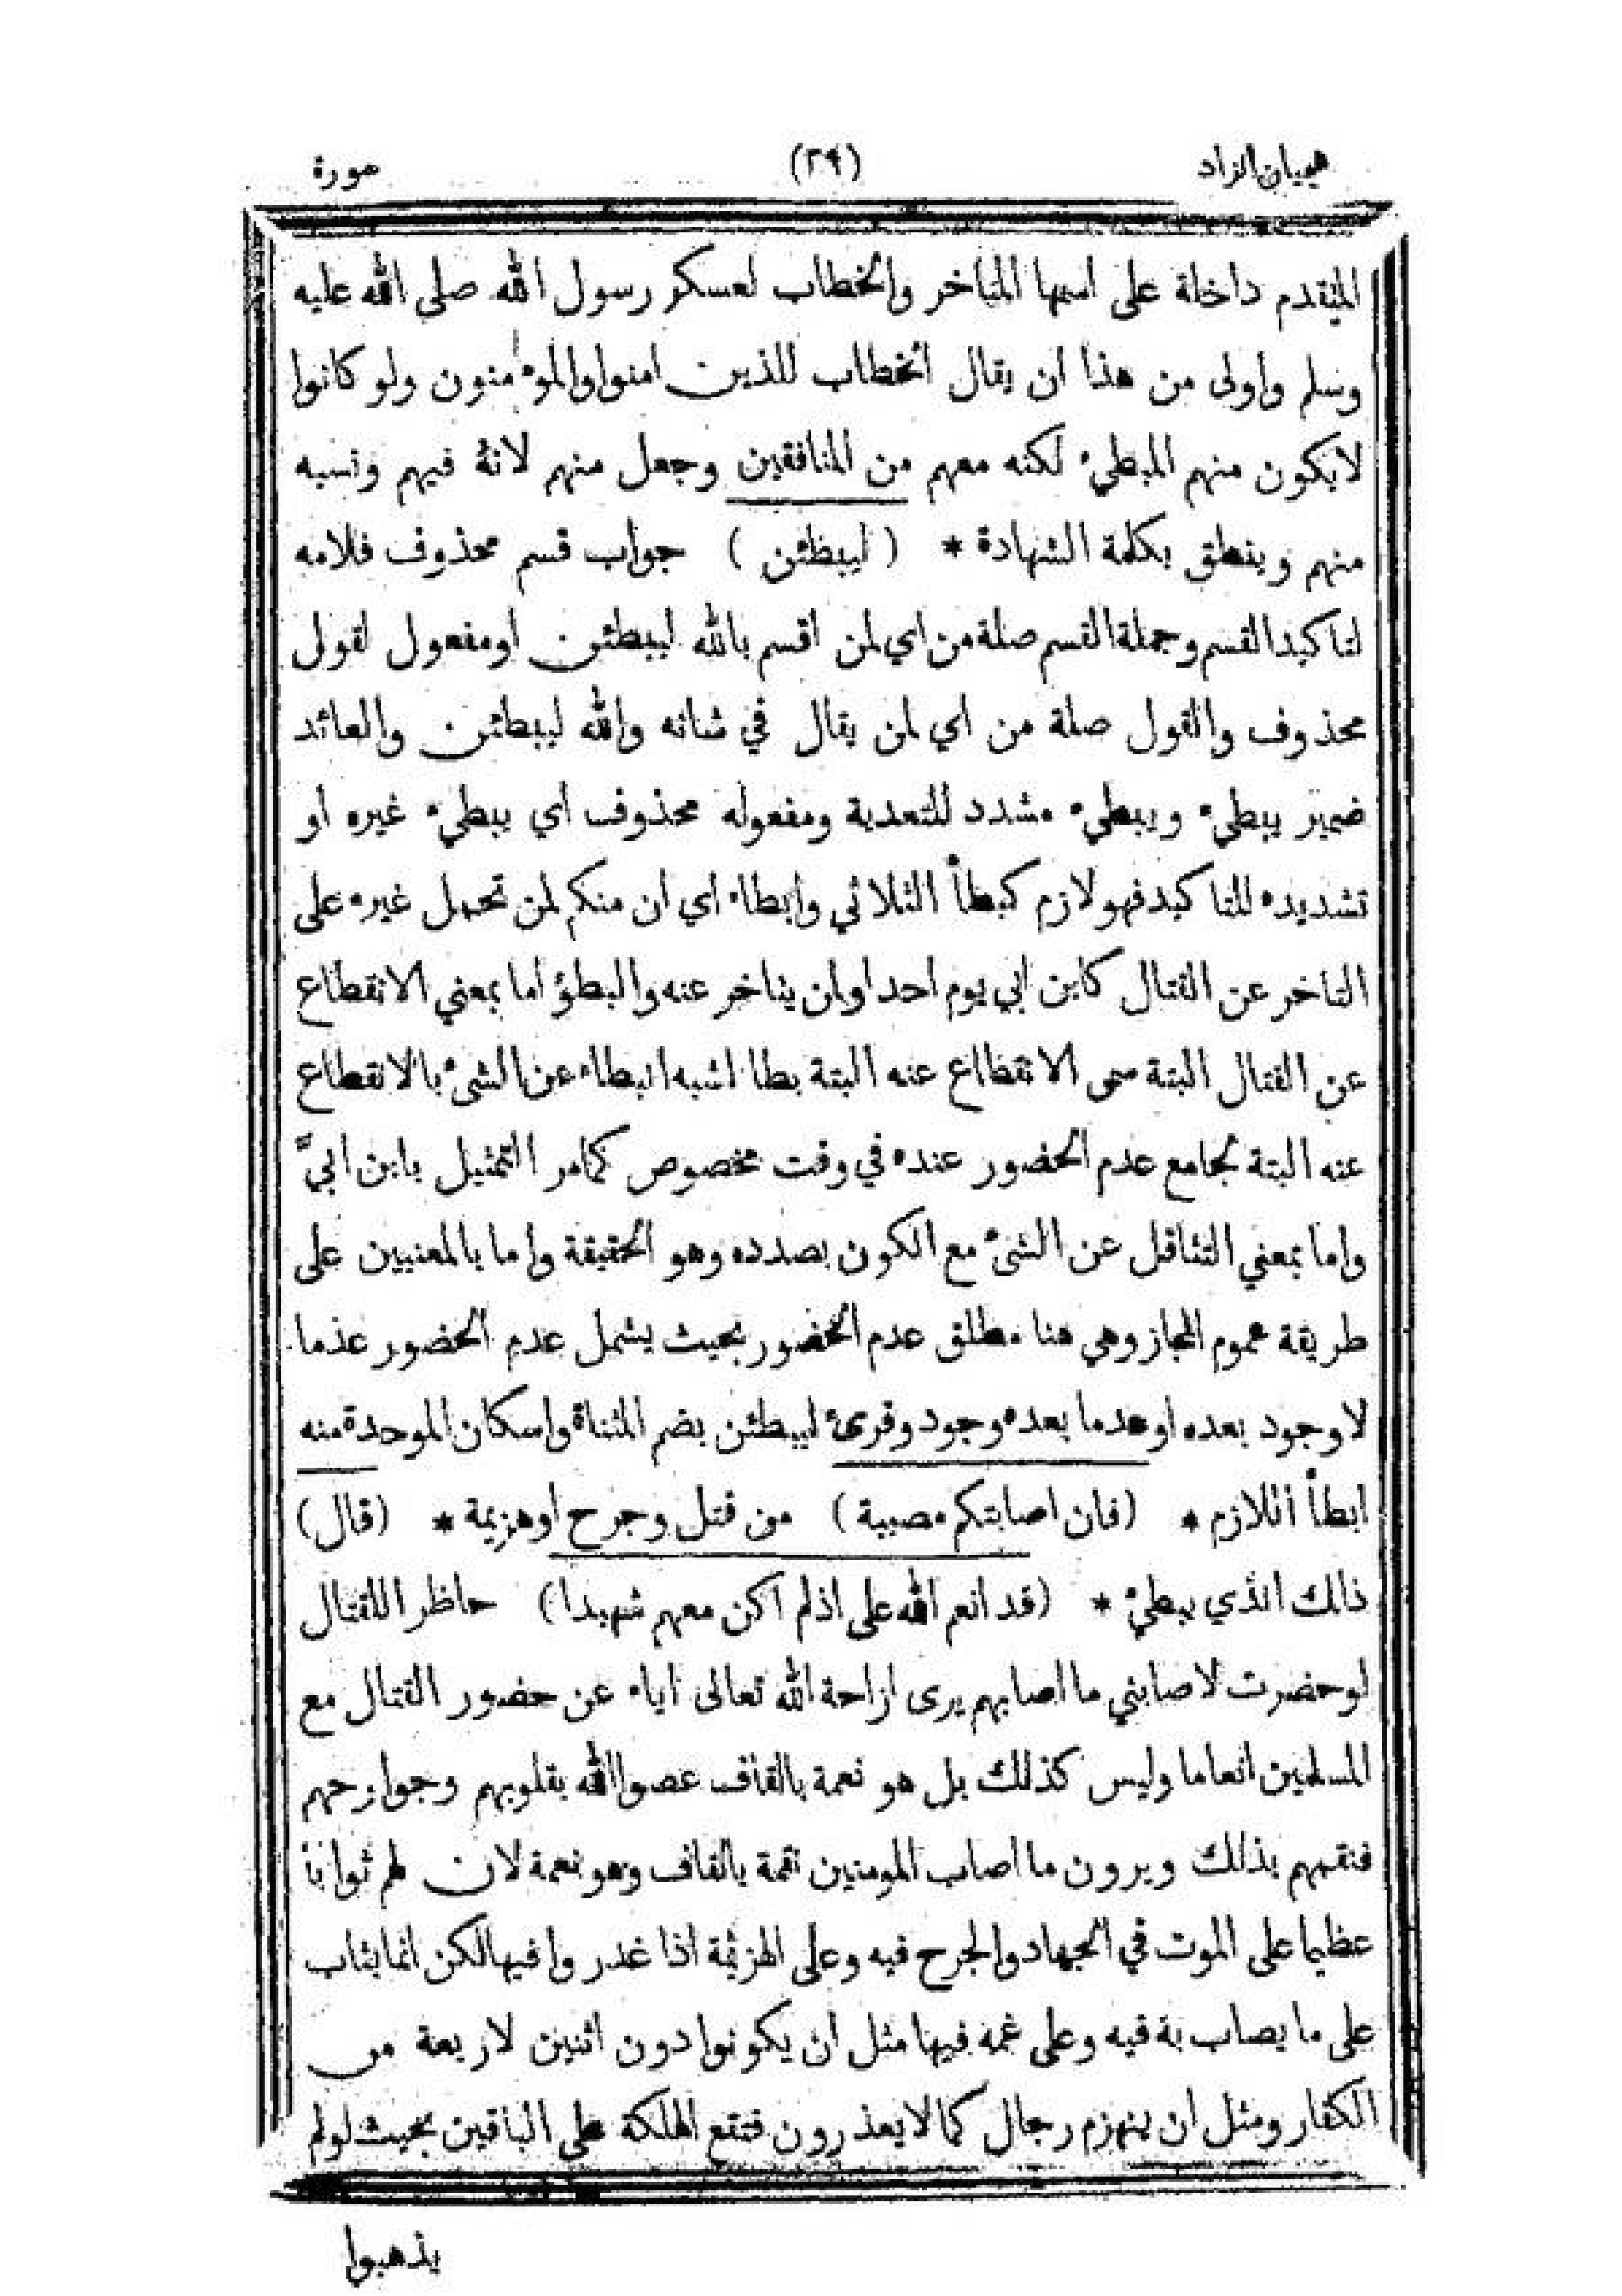 هيميان الزاد (٢٩) سورة
المتقدم داخلة على اسمها المتأخر والخطاب لعسكر رسول الله صلى الله عليه
وسلم واولى من هذا ان يقال الخطاب للذين امنوا والموء منون ولو كانوا
لايكون منهم المبطيء لكنه معهم من المنافقين وجعل منهم لانه فيهم ونسبه
منهم وينطق بكلمة الشهادة * ( ليبطئن ) جواب قسم محذوف فلامه
لتاكيد القسم وجملة القسم صلة من اي لمن اقسم بالله ليبطئن او مفعول لقولى
محذوف والقول صلة من اي لمن يقال في شانه والله ليبطئن والعائد
ضمير يبطيء ويبطيء مشدد للتعدية ومفعوله محذوف أي يبطيء غيره أو
تشديده للتاكيد فهو لازم كبطأ الثلاثي وابطاء اي ان منكم لمن تحمل غيره على
التاخر عن القتال كابن ابي يوم احد او لمن يتاخر عنه والبطؤ اما بمعني الانقطاع
عن القتال البتة سمى الانقطاع عنه البتة بطا لشبه البطاء عن الشيء بالانقطاع
عنه البتة بجامع عدم الحضور عنده في وقت مخصوص كما مر التمثيل بابن ابيَّ
واما بمعني التثاقل عن الشيء مع الكون بصدده وهو الحقيقة واما بالمعنيين على
طريقة عموم المجاز وهي هنا مطلق عدم الحضور بحيث يشمل عدم الحضور عدما
لا وجود بعده او عدما بعده وجود وقرئ ليبطئن بضم المثناة واسكان الموحدة منه
ابطأ اللازم * (فان اصابتكم مصيبة) من قتل وجرح او هزيمة * (قال)
ذالك الذي يبطيء * (قد انعم الله على اذ لم اكن معهم شهيدا) حاظرا للقتال
لو حضرت لاصابني ما اصابهم يرى ازاحة الله تعالى اياه عن حضور القتال مع
المسلمين انعاما وليس كذلك بل هو نعمة بالقاف عصوا الله بقلوبهم وجوارحهم
فنقمهم بذالك ويرون ما اصاب المومنين نقمة بالقاف وهو نعمة لان لهم ثوابا
عظيما على الموت في الجهاد والجرح فيه وعلى الهزيمة اذا غدر وا فيها لكن انما يثاب
على ما يصاب به فيه وعلى غمه فيها مثل ان يكونوا دون اثنين لاربعة من
الكفار ومثل ان ينهزم رجال كما لا يعذرون فتقع الهلكة على الباقين بحيث لو لم
يذهبوا